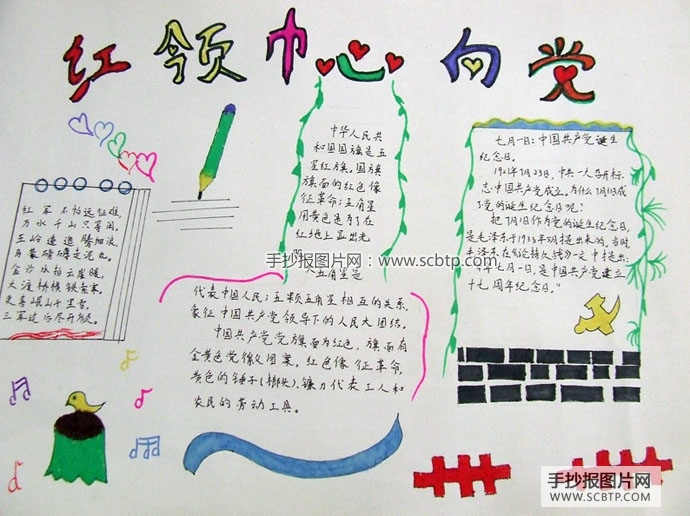 红领巾心向党
红军不怕远征难,
万水千山只等闲,
五岭逶迤腾细浪,
乌蒙磅礴走泥丸。
金沙水拍云崖暖,
大渡桥横铁索寒,
更喜岷山千里雪,
三军过后尽开颜。
中华人民共
和国国旗是五
星红旗,国旗
旗面的红色像
征革命;五角星
用黄色是为了在
红地上显出光
明
大五角星是
代表中国人民;五颗五角星相互的关系,
象征中国共产党领导下的人民大团结。
中国共产党党旗面为红色,旗面有
金黄色党徽图案。红色像征革命,
黄色的锤子(榔头)、镰刀代表工人和
农民的劳动工具。
七月一日:中国共产党诞生
纪念日。
1921年7月23日,中共一大召开标
志中国共产党成立,为什么7月1日成
了党的诞生纪念日呢?
把7月1日作为党的诞生纪念日,
是毛泽东于1938年5月提出来的,当时
毛泽东在《论持久战》一文中提出:
今年七月一日,是中国共产党建立
十七周年纪念日。”
手抄报图片网-www.scbtp.com
手抄报图片网
WWW.SCBTP.COM